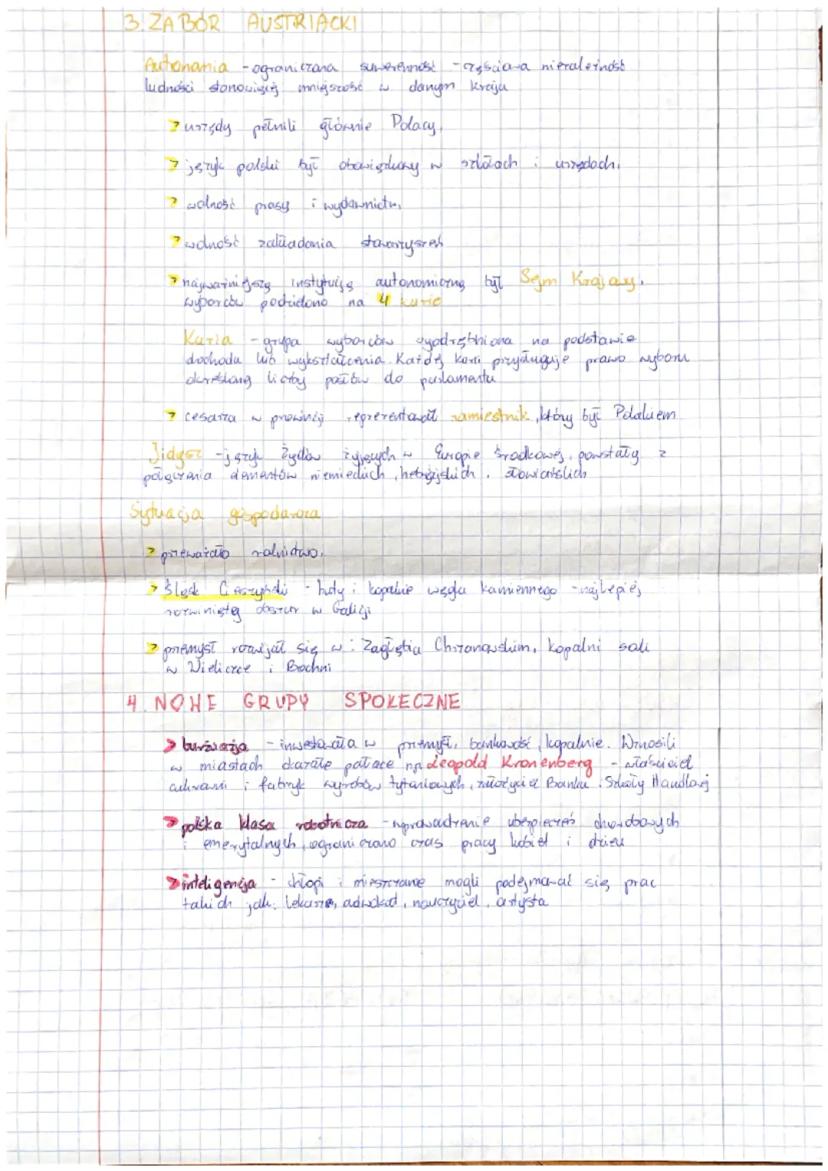 3. ZABÓR AUSTRIACKI
Autonomia - ograniczona suwerenność - częściowa niezależność
ludności stanowiącej mniejszość w danym kraju
> urzędy pełnili głównie Polacy.
> język polski był obowiązkowy w szkołach i urzędach.
> wolność prasy i wydawnictw.
> wolność zakładania stowarzyszeń
> najważniejszą instytucją autonomiczną był Sejm Krajowy.
wyborców podzielono na 4 kurie
Kuria - grupa wyborców wyodrębniona na podstawie
dochodu lub wykształcenia. Każdej kurii przysługuje prawo wyboru
określonej liczby posłów do parlamentu
> cesarza w prowincji reprezentował namiestnik, który był Polakiem
Jidysz - język Żydów żyjących w Europie Środkowej, powstały z
połączenia elementów niemieckich, hebrajskich, słowiańskich
Sytuacja gospodarcza
> przeważało rolnictwo.
> Śląsk Cieszyński - huty i kopalnie węgla kamiennego - najlepiej
rozwinięty obszar w Galicji
> przemysł rozwijał się w: Zagłębiu Chrzanowskim, kopalni soli
w Wieliczce i Bochni
4. NOWE GRUPY SPOŁECZNE
> burżuazja - inwestowała w przemysł, bankowość, kopalnie. Wznosili
w miastach okazałe pałace np. Leopold Kronenberg - właściciel
cukrowni i fabryk wyrobów tytoniowych, założyciel Banku i Szkoły Handlowej
> polska klasa robotnicza - wprowadzenie ubezpieczeń chorobowych
i emerytalnych, ograniczono czas pracy kobiet i dzieci
> inteligencja - chłopi i mieszczanie mogli podejmować się prac
takich jak: lekarze, adwokat, nauczyciel, artysta